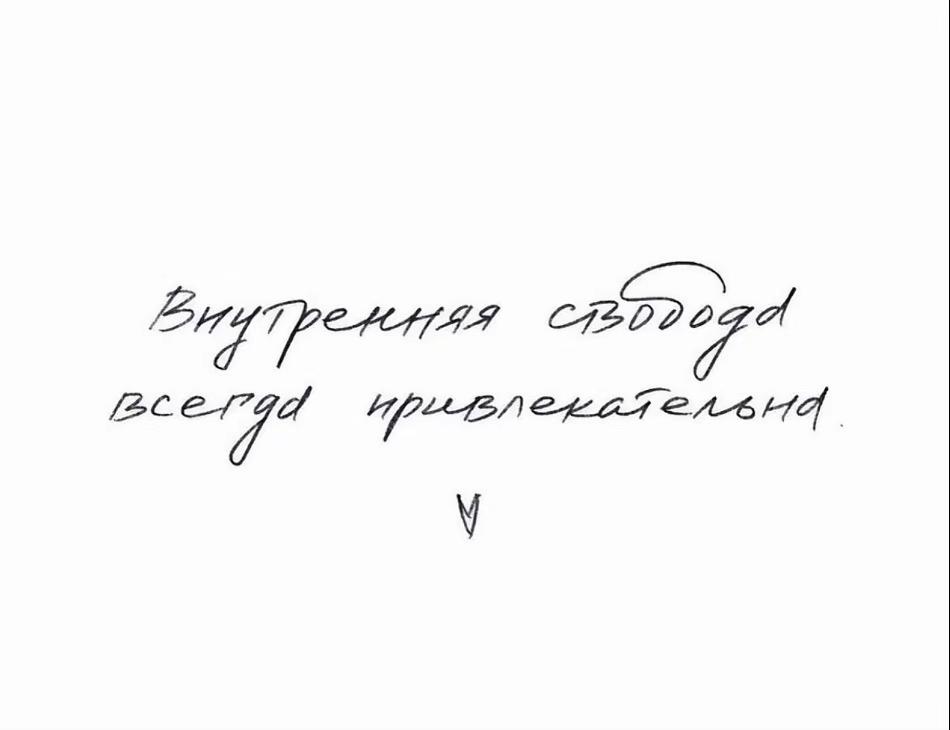 Внутренняя свобода
всегда привлекательна.